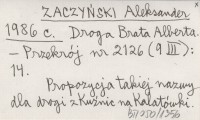 ZACZYŃSKI Aleksander
1986 c. Droga Brata Alberta.
– Przekrój nr 2126 (9 III):
14.
Propozycja takiej nazwy
dla drogi z Kuźnic na Kalatówki.
BJ1/250/1256